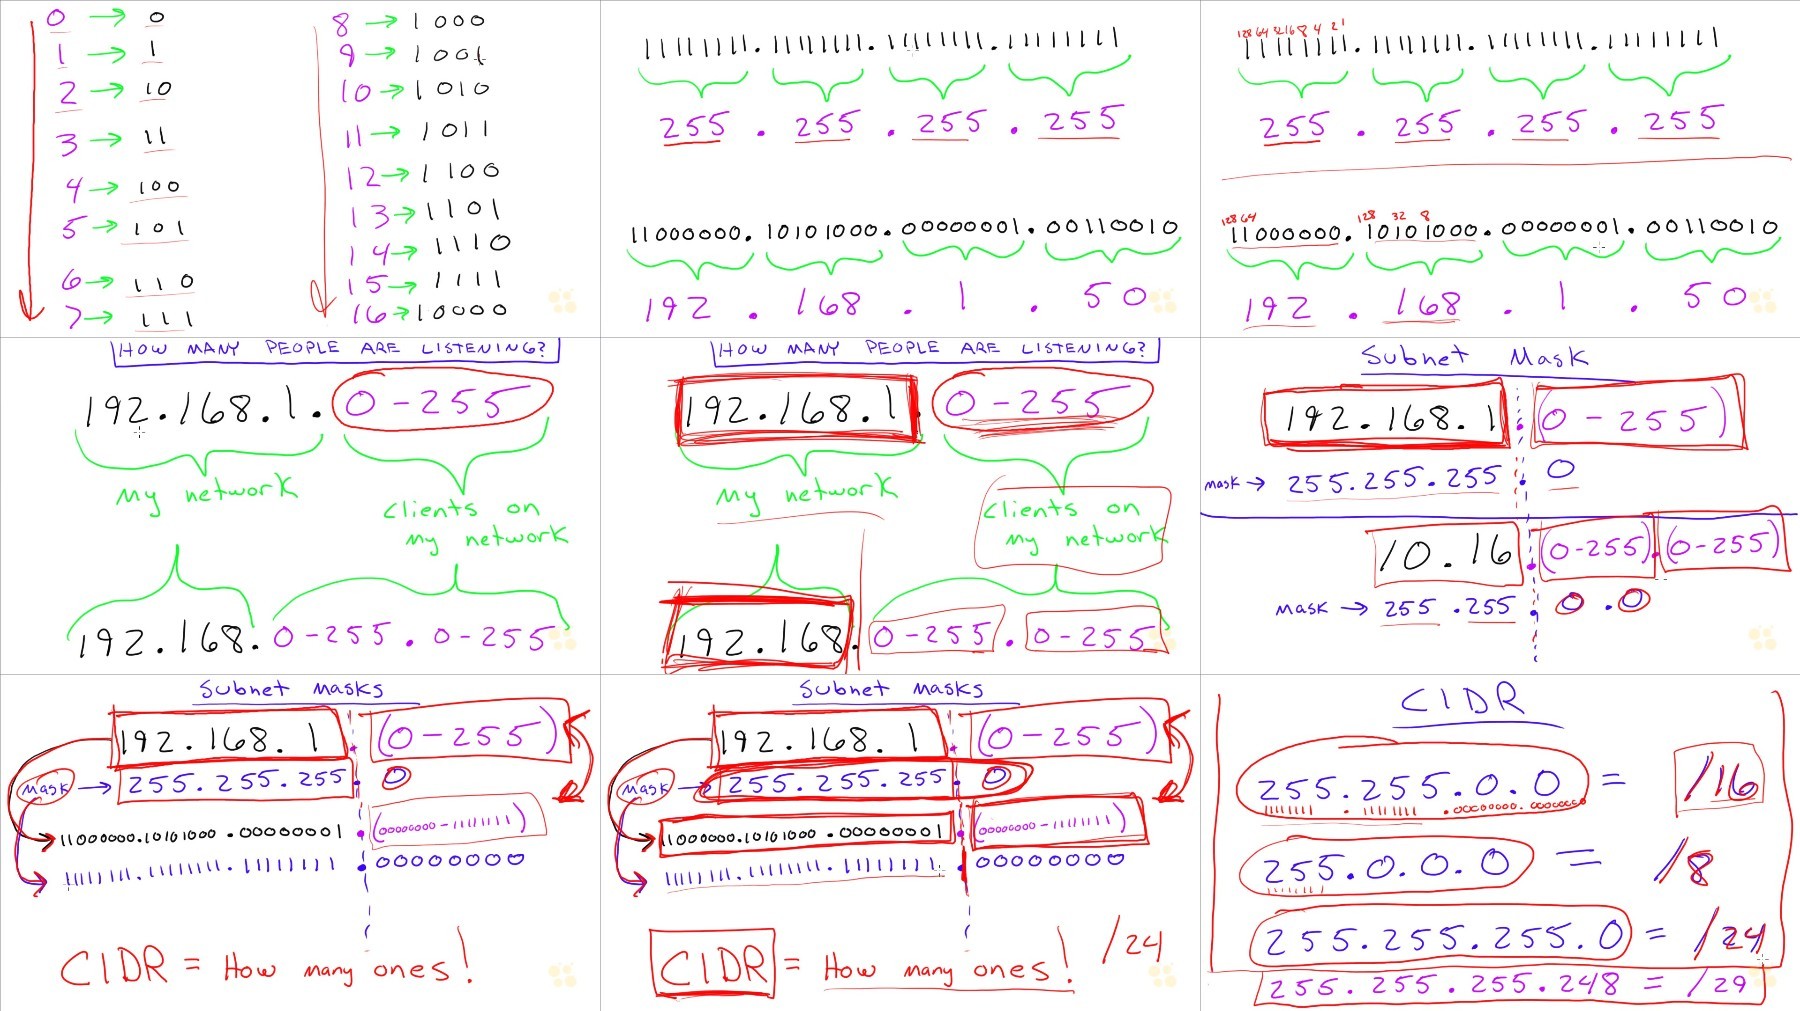 0 → 0
1 → 1
2 → 10
3 → 11
4 → 100
5 → 101
6 → 110
7 → 111
8 → 1000
9 → 1001
10 → 1010
11 → 1011
12 → 1100
13 → 1101
14 → 1110
15 → 1111
16 → 10000
11111111.11111111.11111111.11111111
255 . 255 . 255 . 255
11000000.10101000.00000001.00110010
192 . 168 . 1 . 50
128 64 32 16 8 4 2 1
11111111.11111111.11111111.11111111
255 . 255 . 255 . 255
128 64 128 32 8
11000000.10101000.00000001.00110010
192 . 168 . 1 . 50
HOW MANY PEOPLE ARE LISTENING?
192.168.1. 0-255
My network
Clients on
my network
192.168. 0-255 . 0-255
HOW MANY PEOPLE ARE LISTENING?
192.168.1. 0-255
My network
Clients on
my network
192.168. 0-255 . 0-255
Subnet Mask
192.168.1 . (0-255)
mask → 255.255.255 . 0
10.16 . (0-255).(0-255)
mask → 255.255 . 0.0
Subnet masks
192.168.1 . (0-255)
mask → 255.255.255 . 0
11000000.10101000.00000001 . (00000000-11111111)
11111111.11111111.11111111 . 00000000
CIDR = How many ones!
Subnet masks
192.168.1 . (0-255)
mask → 255.255.255 . 0
11000000.10101000.00000001 . (00000000-11111111)
11111111.11111111.11111111 . 00000000
CIDR = How many ones! /24
CIDR
255.255.0.0 = /16
11111111.11111111.00000000.00000000
255.0.0.0 = /8
11111111
255.255.255.0 = /24
255.255.255.248 = /29